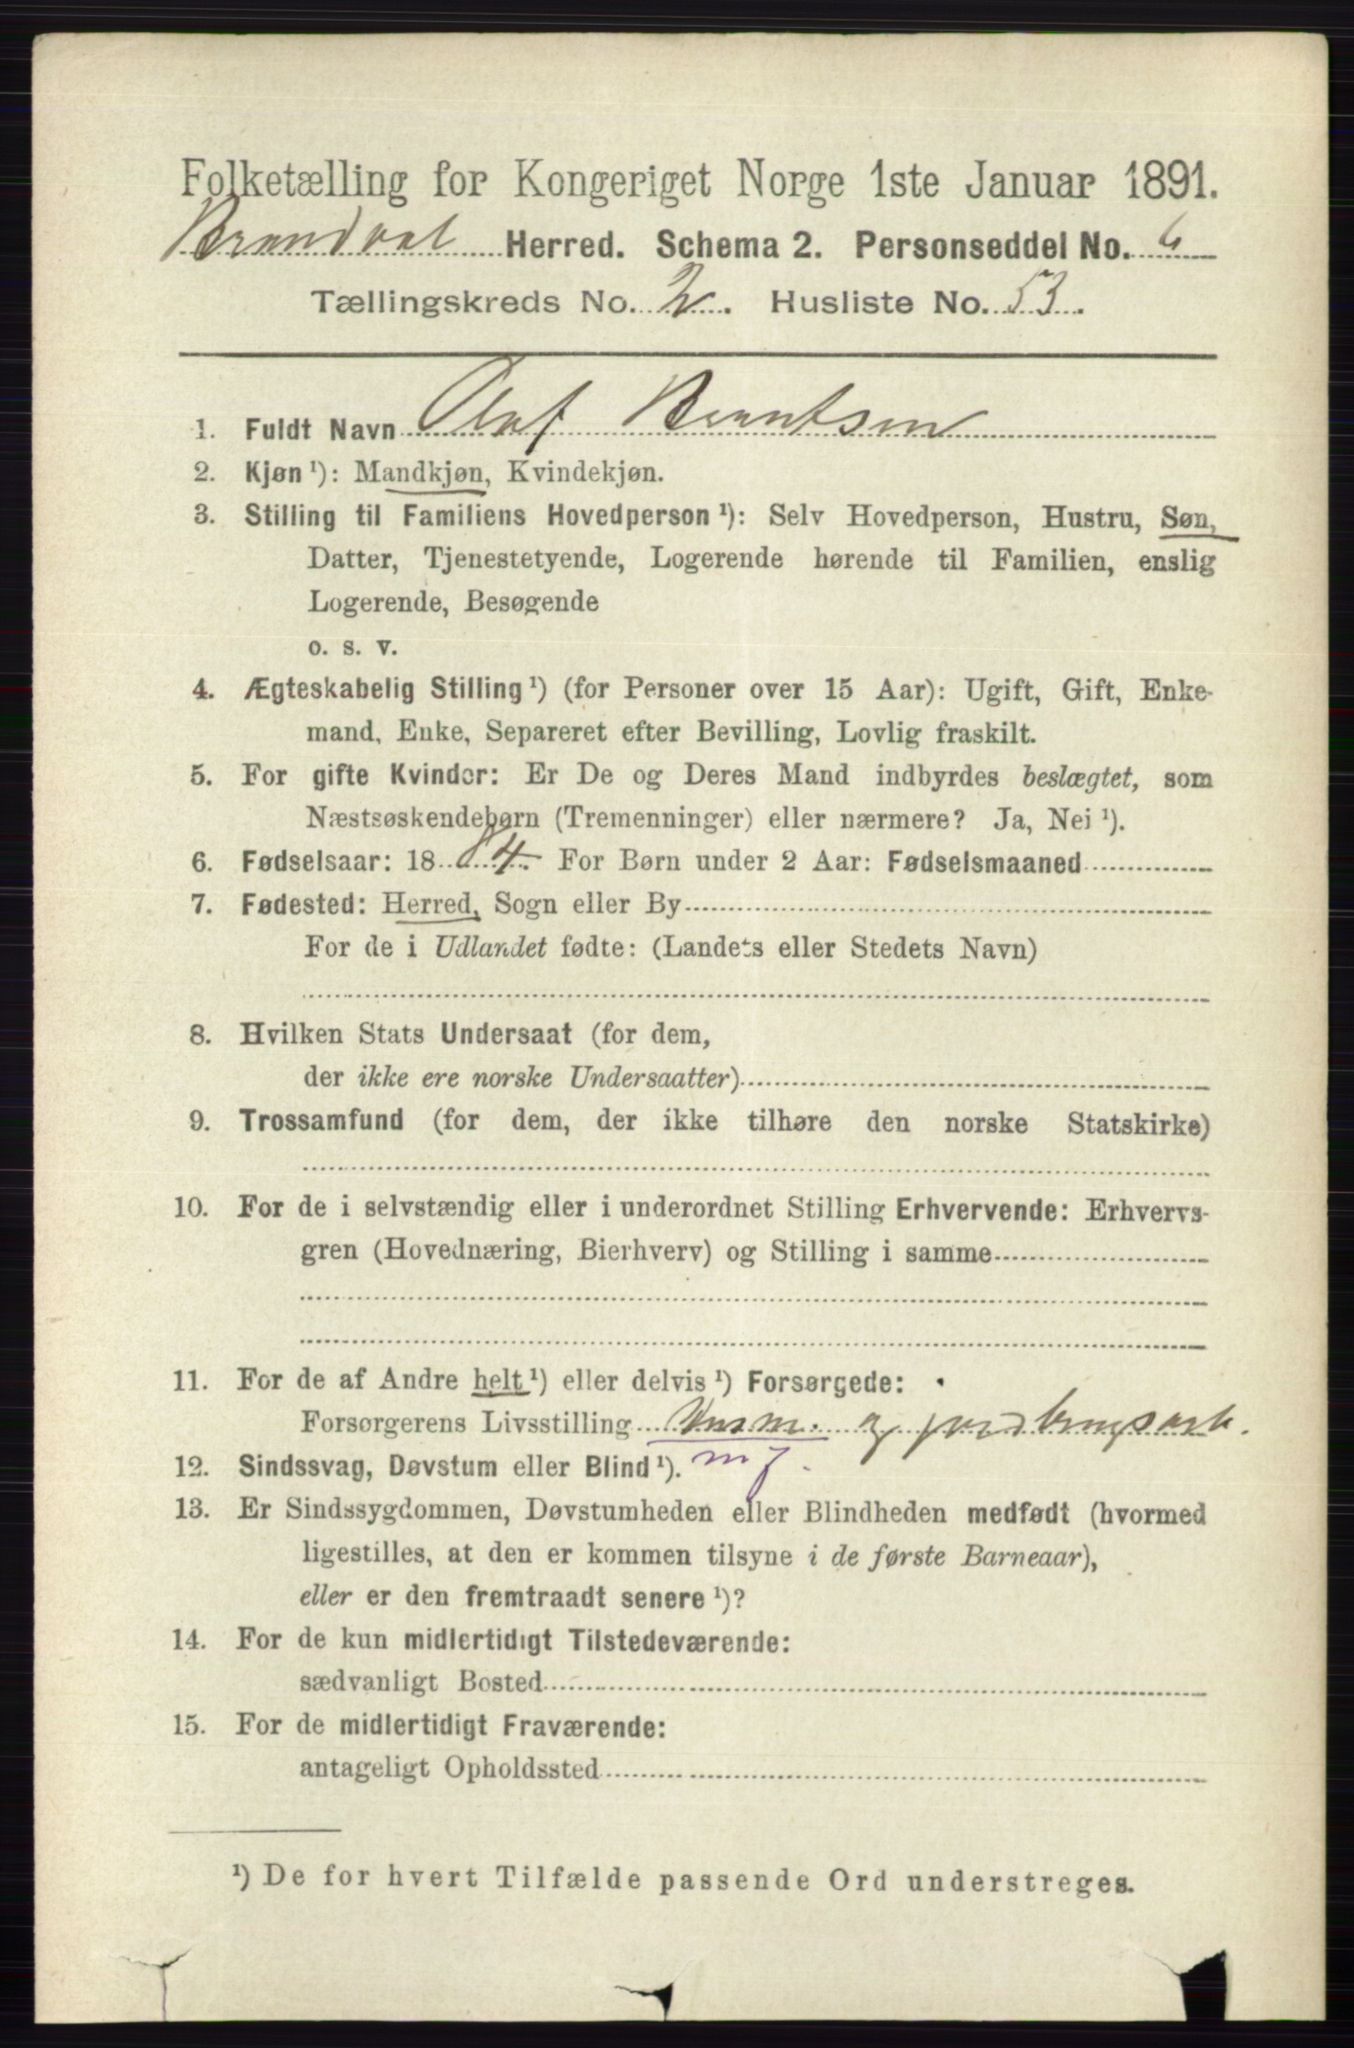 Folketælling for Kongeriget Norge 1ste Januar 1891.
Brandval Herred. Schema 2. Personseddel No. 6
Tællingskreds No. 2. Husliste No. 53.
1. Fuldt Navn Olaf Berntsen
2. Kjøn ¹): Mandkjøn, Kvindekjøn.
3. Stilling til Familiens Hovedperson ¹): Selv Hovedperson, Hustru, Søn,
Datter, Tjenestetyende, Logerende hørende til Familien, enslig
Logerende, Besøgende
o. s. v.
4. Ægteskabelig Stilling ¹) (for Personer over 15 Aar): Ugift, Gift, Enke-
mand, Enke, Separeret efter Bevilling, Lovlig fraskilt.
5. For gifte Kvinder: Er De og Deres Mand indbyrdes beslægtet, som
Næstsøskendebørn (Tremenninger) eller nærmere? Ja, Nei ¹).
6. Fødselsaar: 1884. For Børn under 2 Aar: Fødselsmaaned
7. Fødested: Herred, Sogn eller By
For de i Udlandet fødte: (Landets eller Stedets Navn)
8. Hvilken Stats Undersaat (for dem,
der ikke ere norske Undersaatter)
9. Trossamfund (for dem, der ikke tilhøre den norske Statskirke)
10. For de i selvstændig eller i underordnet Stilling Erhvervende: Erhvervs-
gren (Hovednæring, Bierhverv) og Stilling i samme
11. For de af Andre helt ¹) eller delvis ¹) Forsørgede:
Forsørgerens Livsstilling Husm. og jordbrugsarb.
12. Sindssvag, Døvstum eller Blind ¹). m j.
13. Er Sindssygdommen, Døvstumheden eller Blindheden medfødt (hvormed
ligestilles, at den er kommen tilsyne i de første Barneaar),
eller er den fremtraadt senere ¹)?
14. For de kun midlertidigt Tilstedeværende:
sædvanligt Bosted
15. For de midlertidigt Fraværende:
antageligt Opholdssted
¹) De for hvert Tilfælde passende Ord understreges.